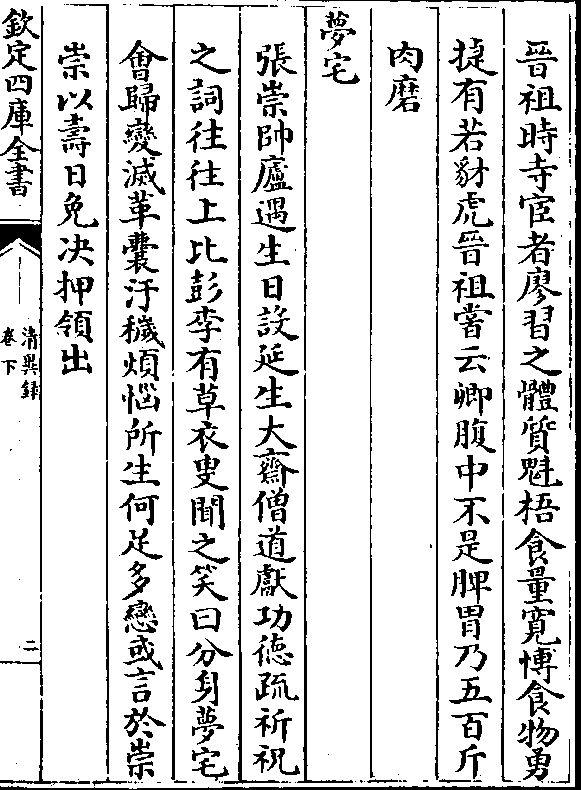 晉祖時寺宦者廖習之體質魁梧食量寛愽食物勇
捷有若豺虎晉祖嘗云卿腹中不是脾胃乃五百斤
肉磨
夢宅
張崇帥廬遇生日設延生大齋僧道獻功徳疏祈祝
之詞往往上比彭李有草衣叟聞之笑曰分身夢宅
會歸變滅革囊汙穢煩惱所生何足多戀或言於崇
崇以壽日免决押領出
欽定四庫全書
清異録
卷下
二